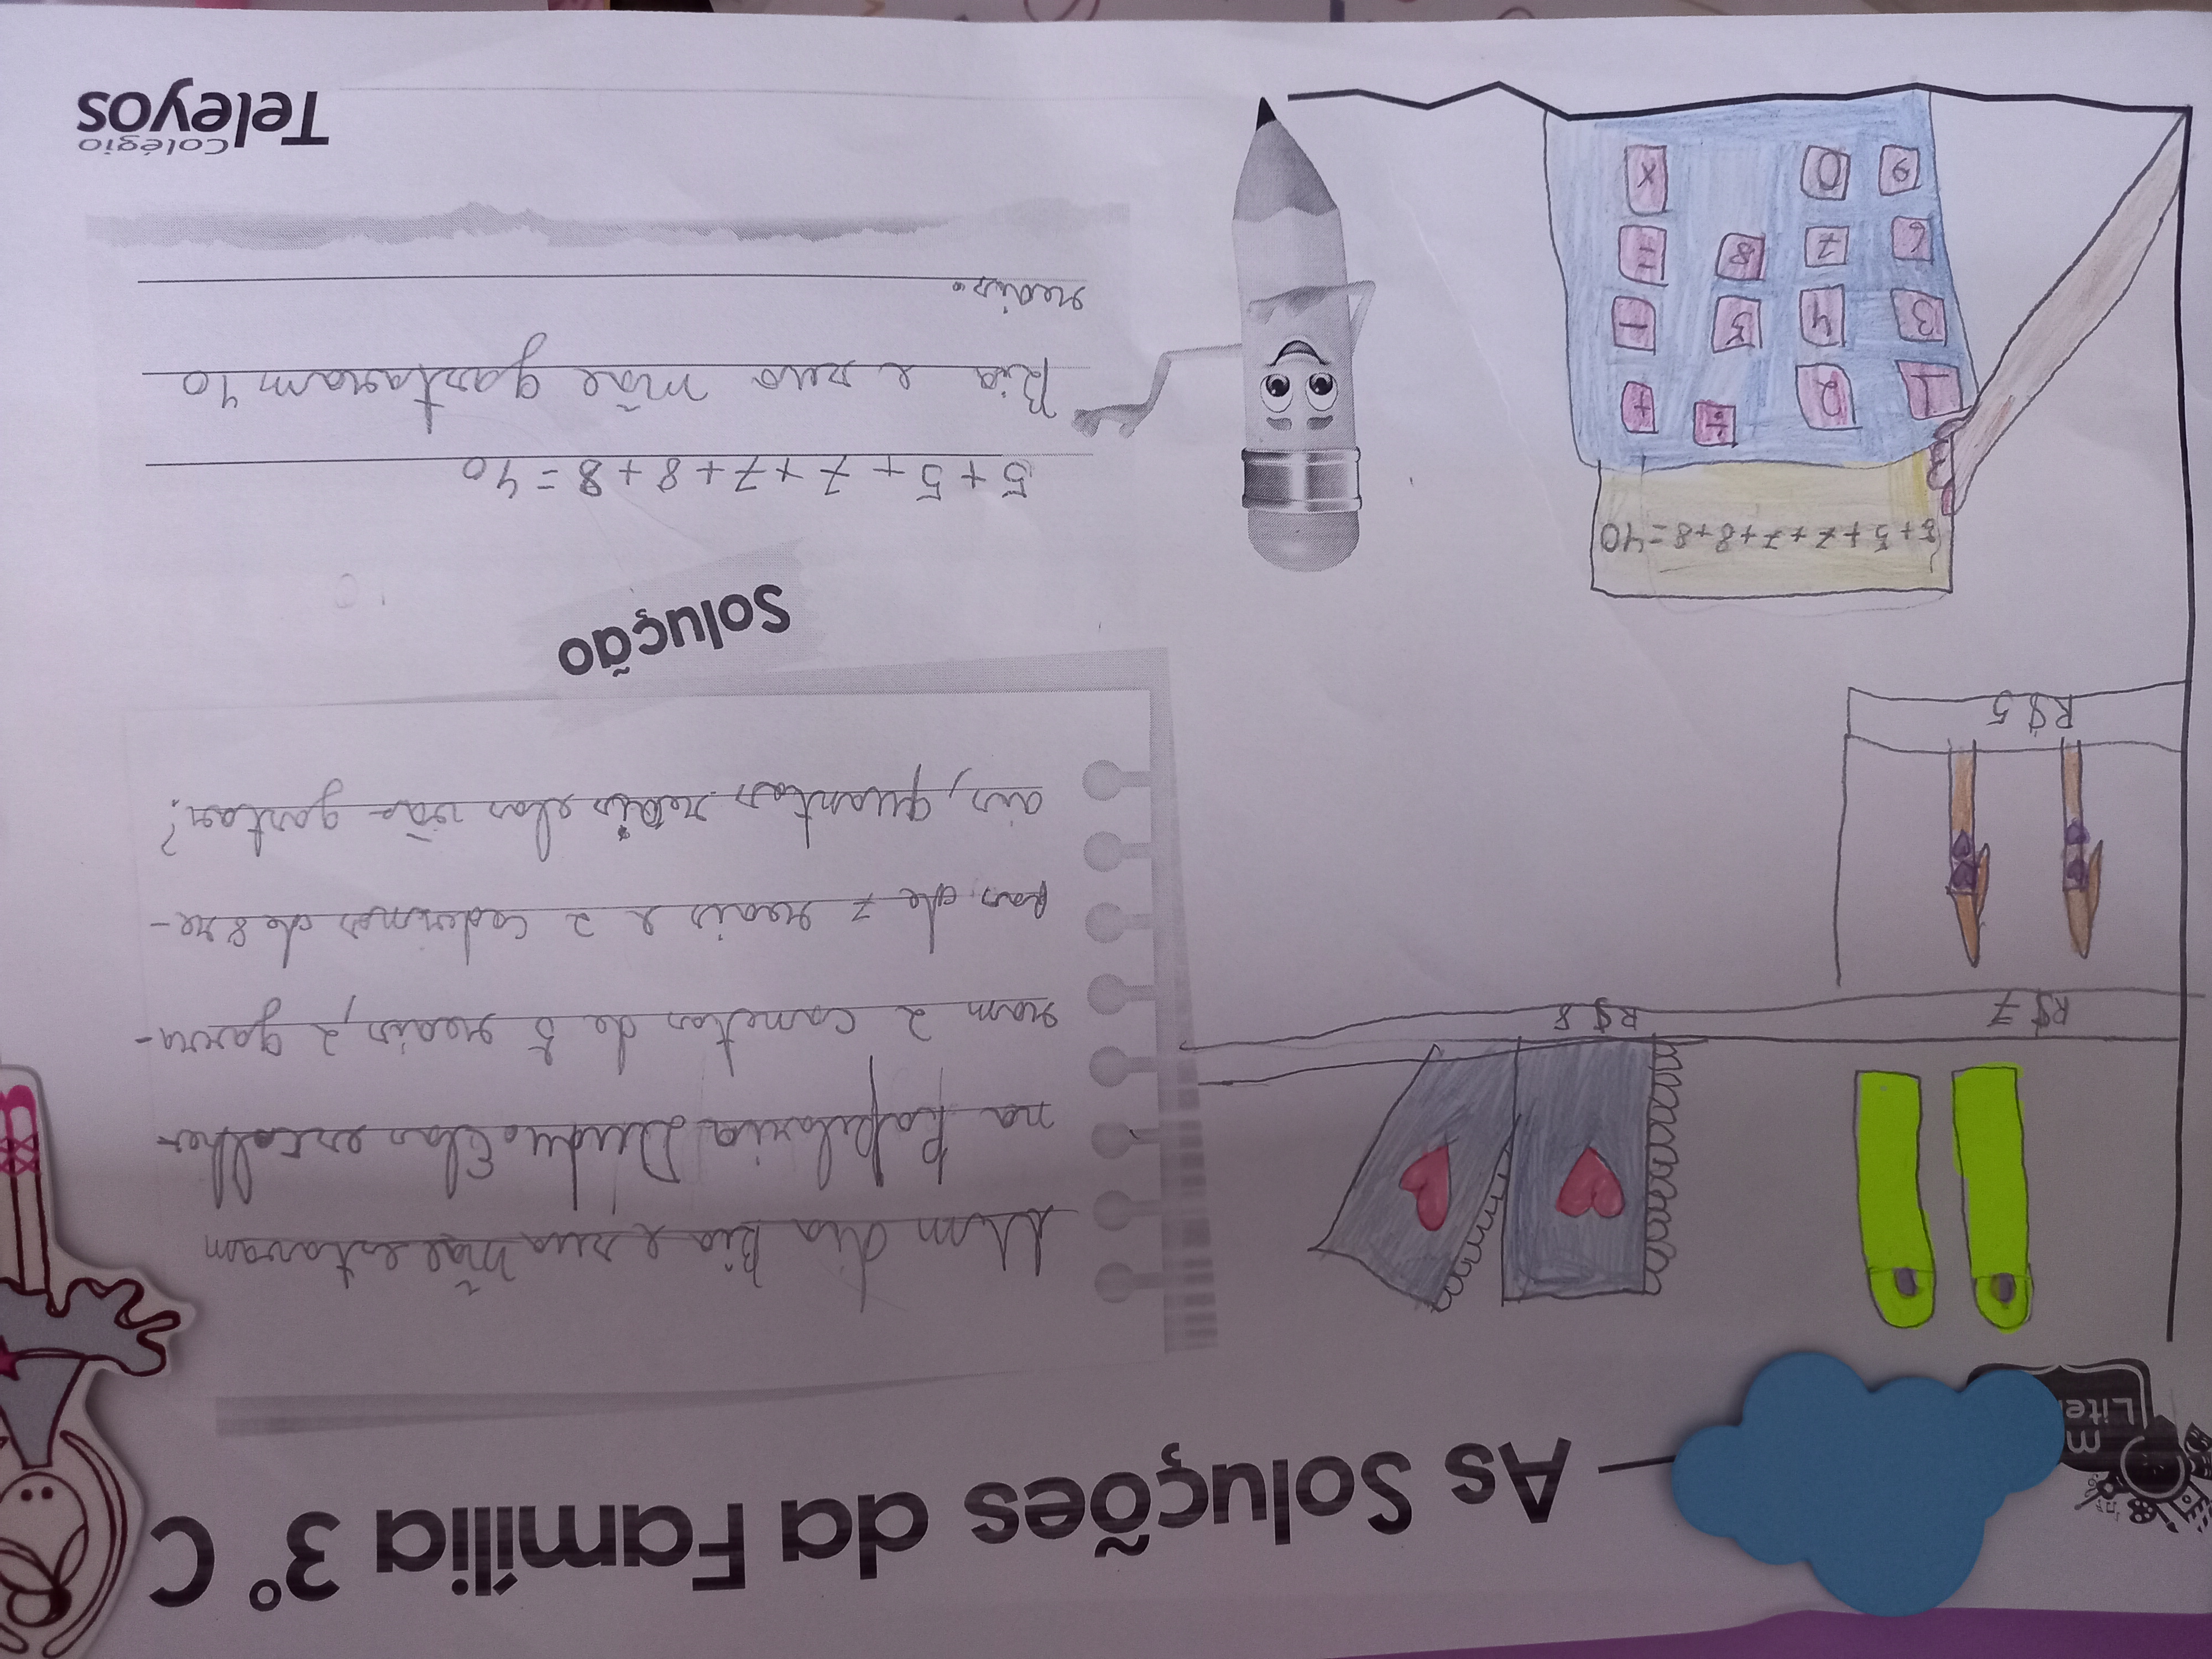 As Soluções da Família 3° C
Lite
m
Um dia Bia e sua mãe estavam
na papelaria Dudu. Elas escolhe-
ram 2 canetas de 5 reais, 2 garra-
fas de 7 reais e 2 cadernos de 8 re-
ais, quantos reais elas vão gastar?
R$ 7
R$ 8
R$ 5
Solução
5 + 5 + 7 + 7 + 8 + 8 = 40
Bia e sua mãe gastaram 40
reais.
5+5+7+7+8+8=40
1 2 ÷ +
3 4 5 -
6 7 8 =
9 0 x
Colégio
Teleyos